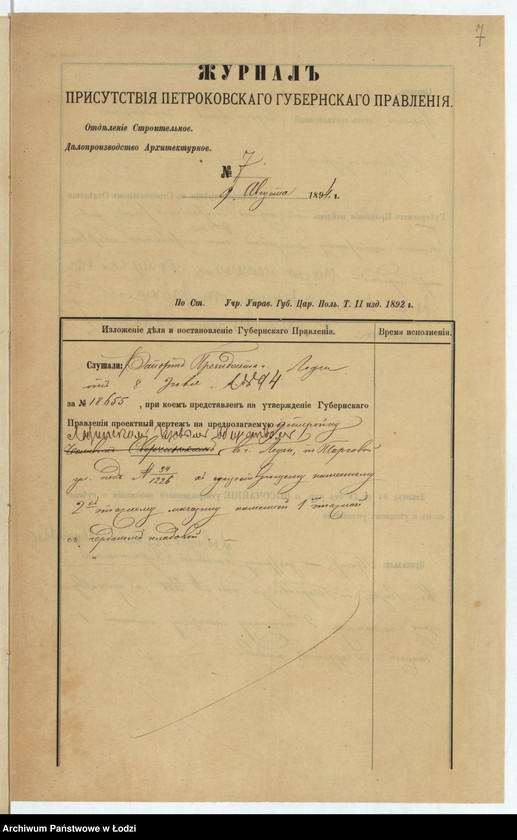 7
ЖУРНАЛЪ
ПРИСУТСТВІЯ ПЕТРОКОВСКАГО ГУБЕРНСКАГО ПРАВЛЕНІЯ.
Отдѣленіе Строительное.
Дѣлопроизводство Архитектурное.
№ 7
9 Августа 1894 г.
По Ст. Учр. Управ. Губ. Цар. Поль. Т. II изд. 1892 г.
Изложеніе дѣла и постановленіе Губернскаго Правленія.
Время исполненія.
Слушали: Рапортъ Президента г. Лодзи
отъ 8 Іюля 1894
за № 18655, при коемъ представленъ на утвержденіе Губернскаго
Правленія проектный чертежъ на предполагаемую постройку
въ г. Лодзи, по Торговой
ул. подъ № 39/1226 а существующему каменному
2хъ этажному магазину каменной 1 этажной
съ кладовой.
Archiwum Państwowe w Łodzi